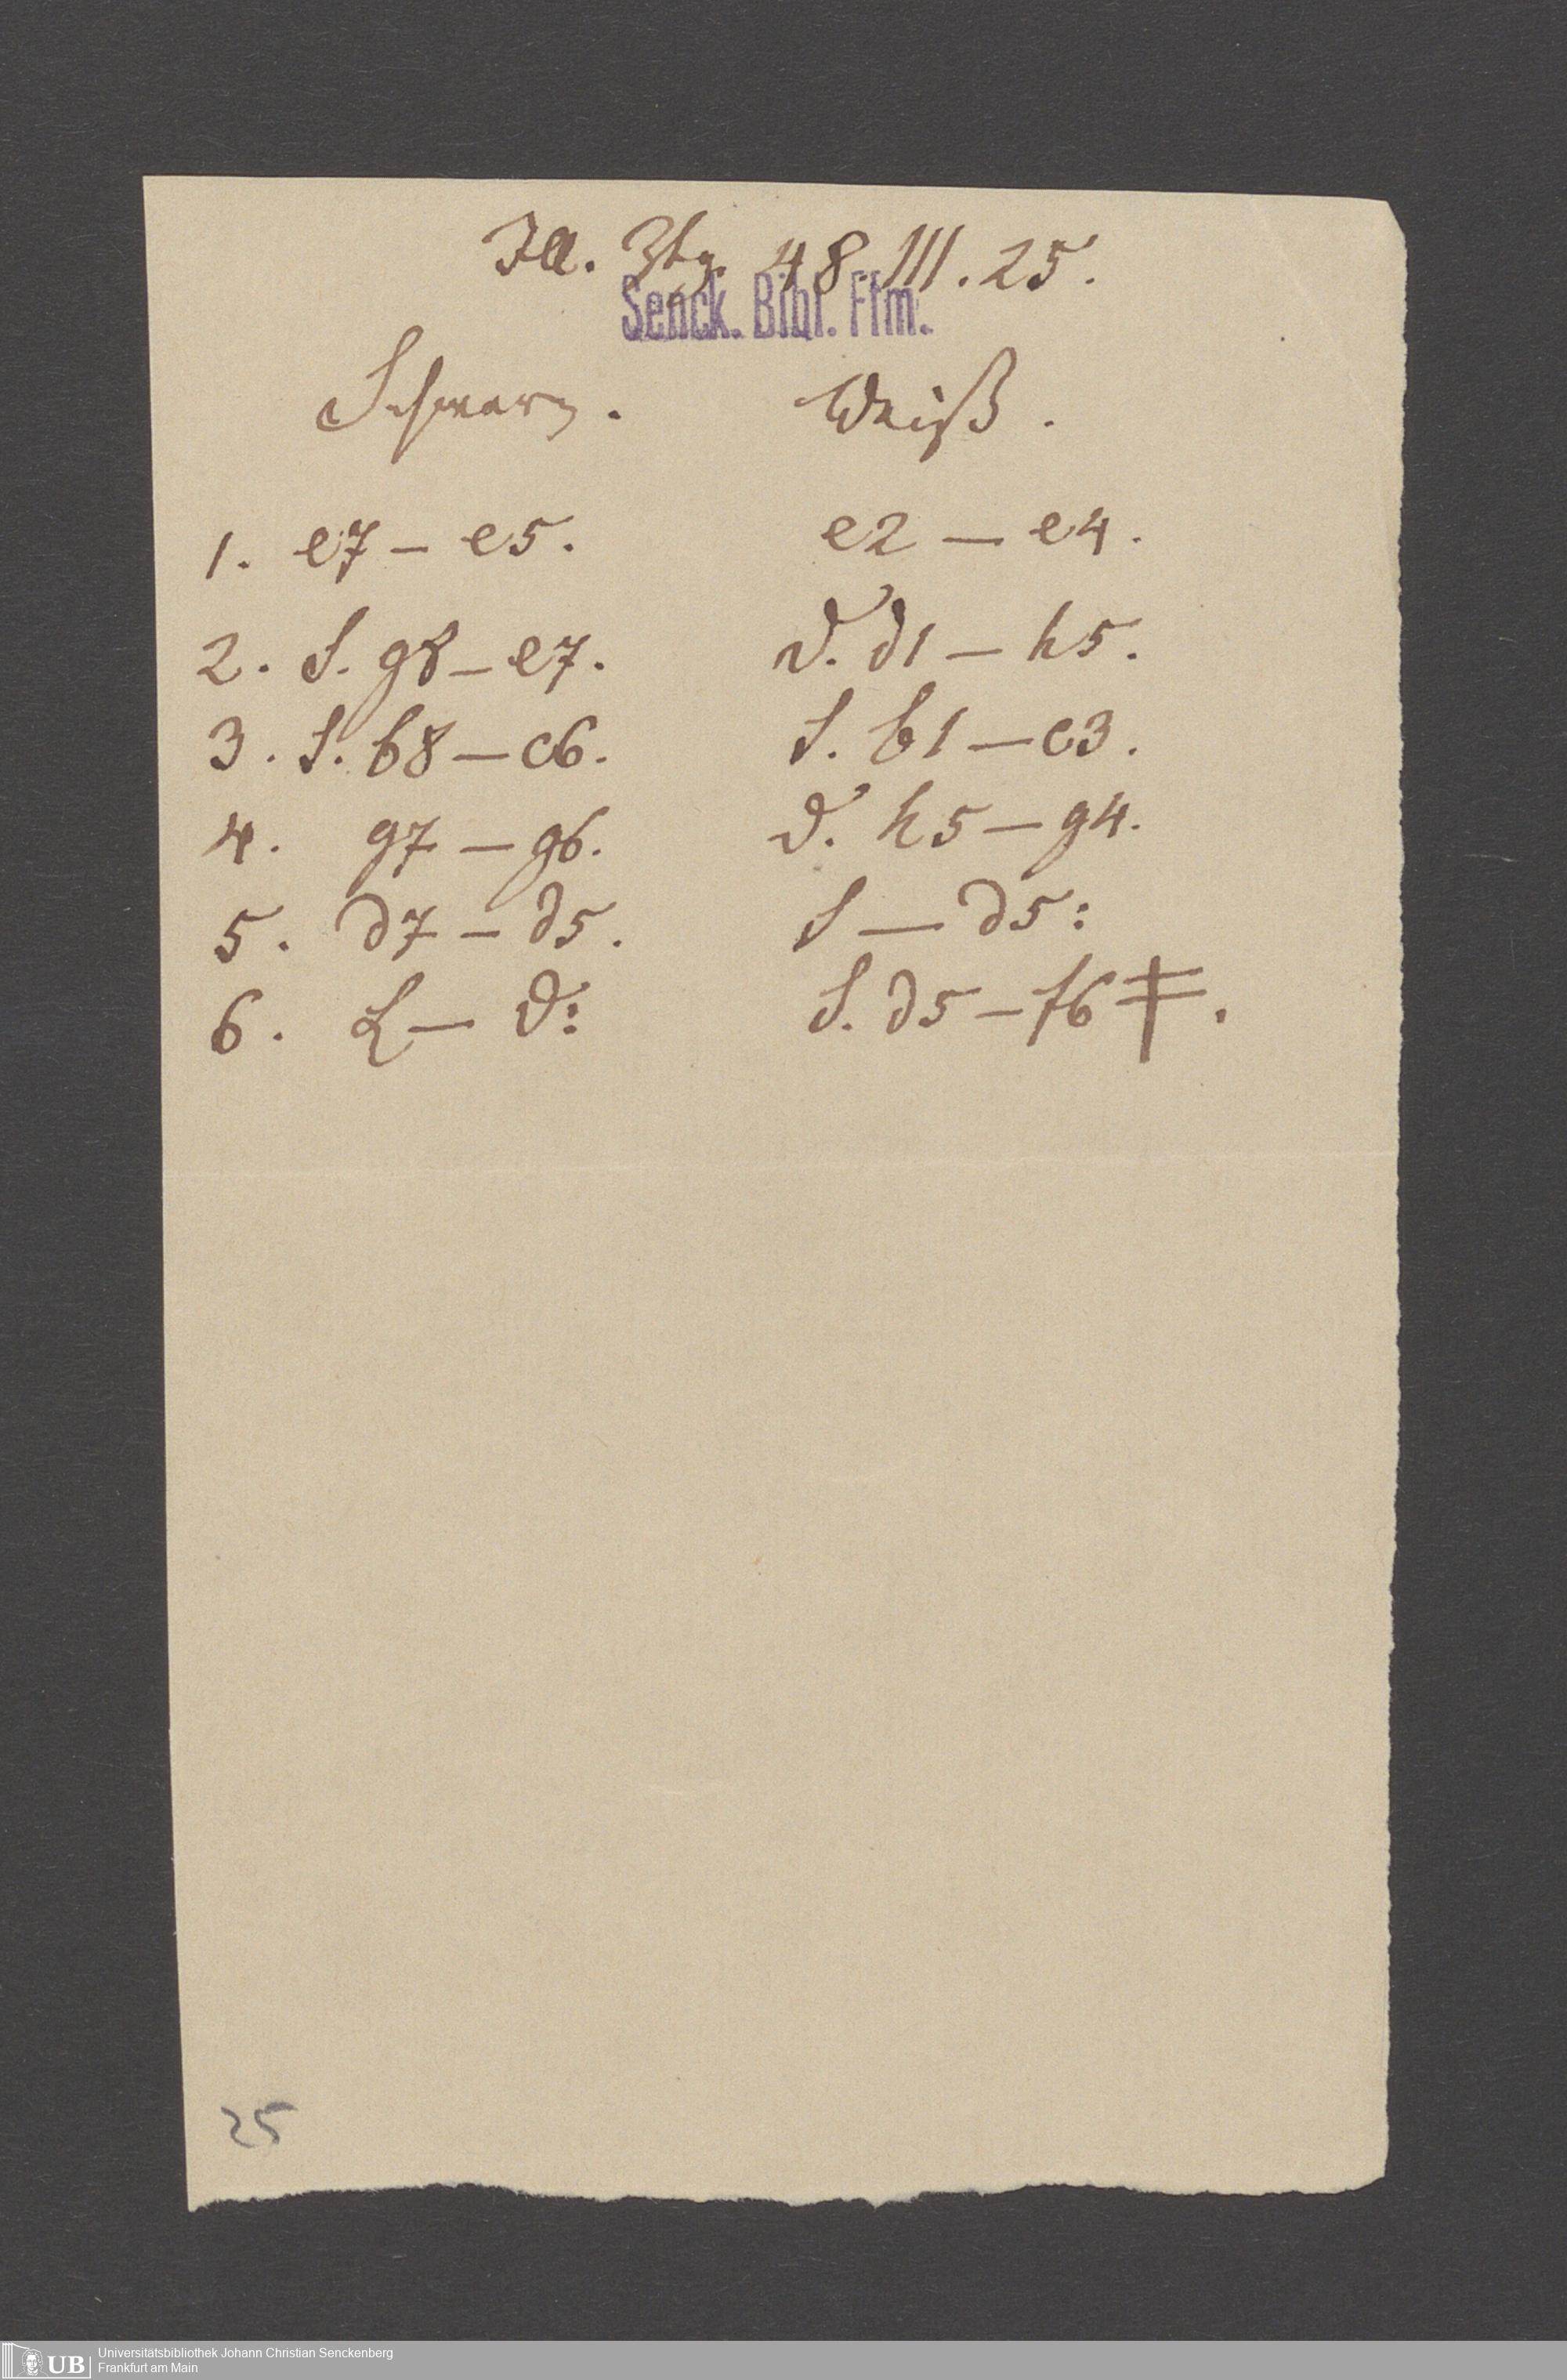 Ill. Ztg. 48. III. 25.
Senck. Bibl. Ffm.
Schwarz. Weiß.
1. e7 – e5. e2 – e4.
2. S. g8 – e7. D. d1 – h5.
3. S. b8 – c6. S. b1 – c3.
4. g7 – g6. D. h5 – g4.
5. d7 – d5. S – d5:
6. L – D: S. d5 – f6 ‡.
25
UB Universitätsbibliothek Johann Christian Senckenberg
Frankfurt am Main